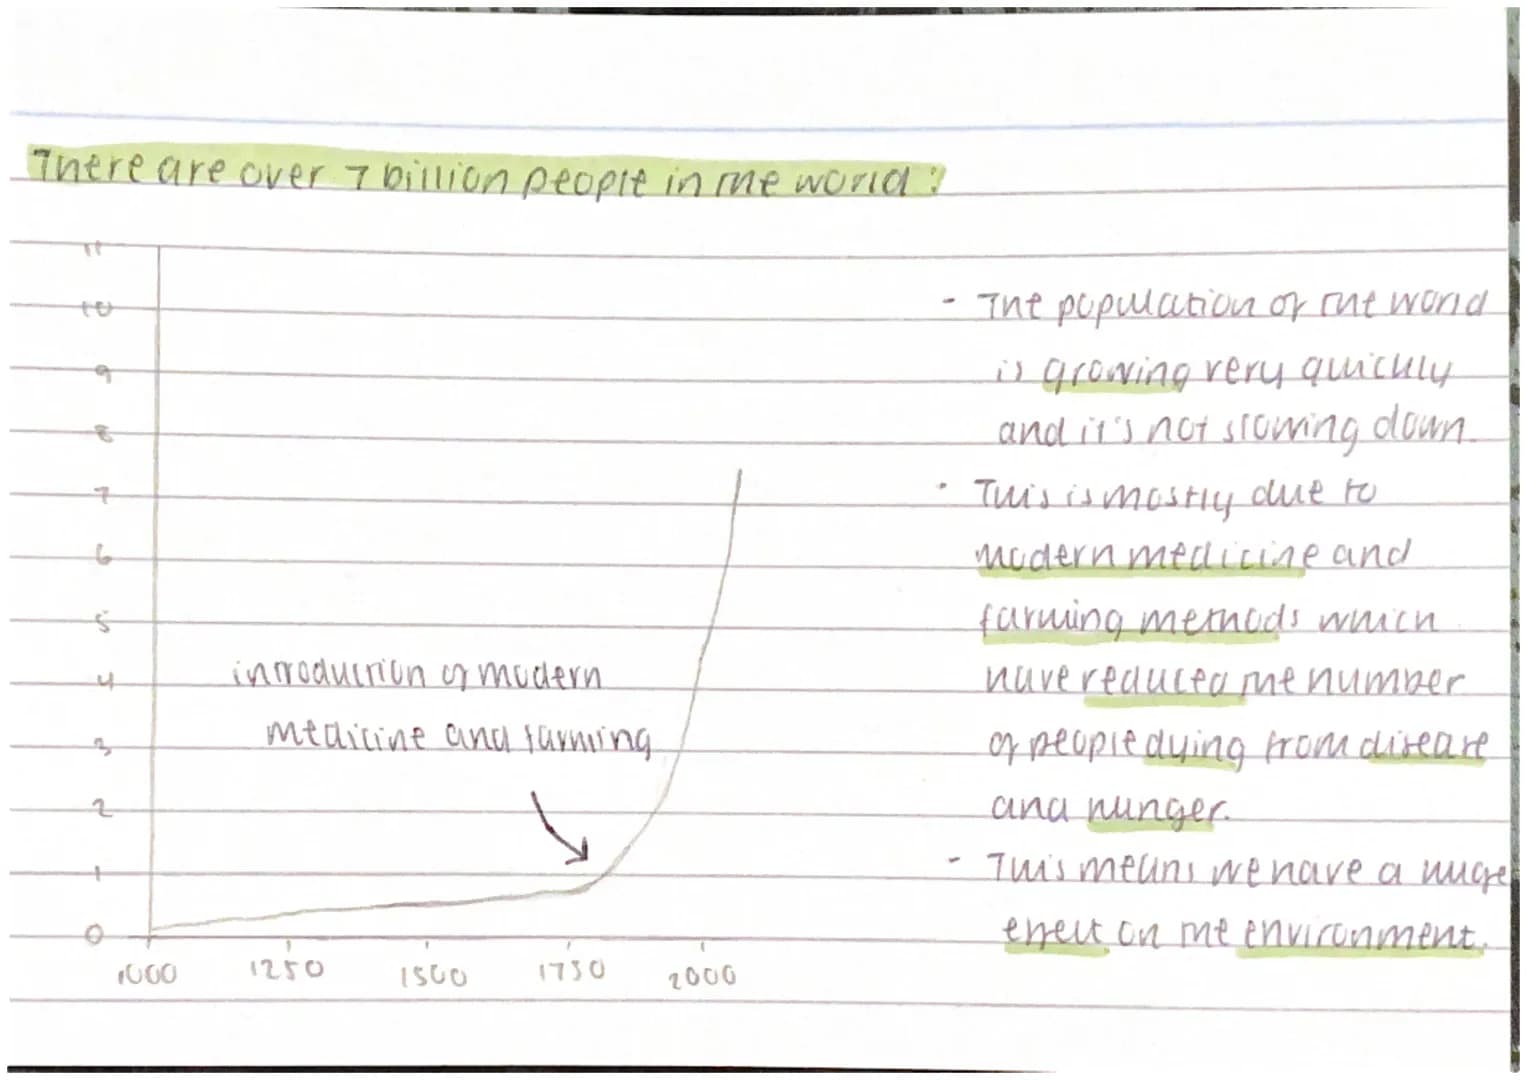 There are over 7 billion people in the world:
11
10
9
8
7
6
5
4
3
2
1
0
introduction of modern
medicine and farming
1000
1250
1500
1750
2000
- The population of the world
is growing very quickly
and it's not slowing down.
· This is mostly due to
modern medicine and
farming methods which
have reduced the number
of people dying from disease
and hunger.
- This means we have a huge
effect on the environment.